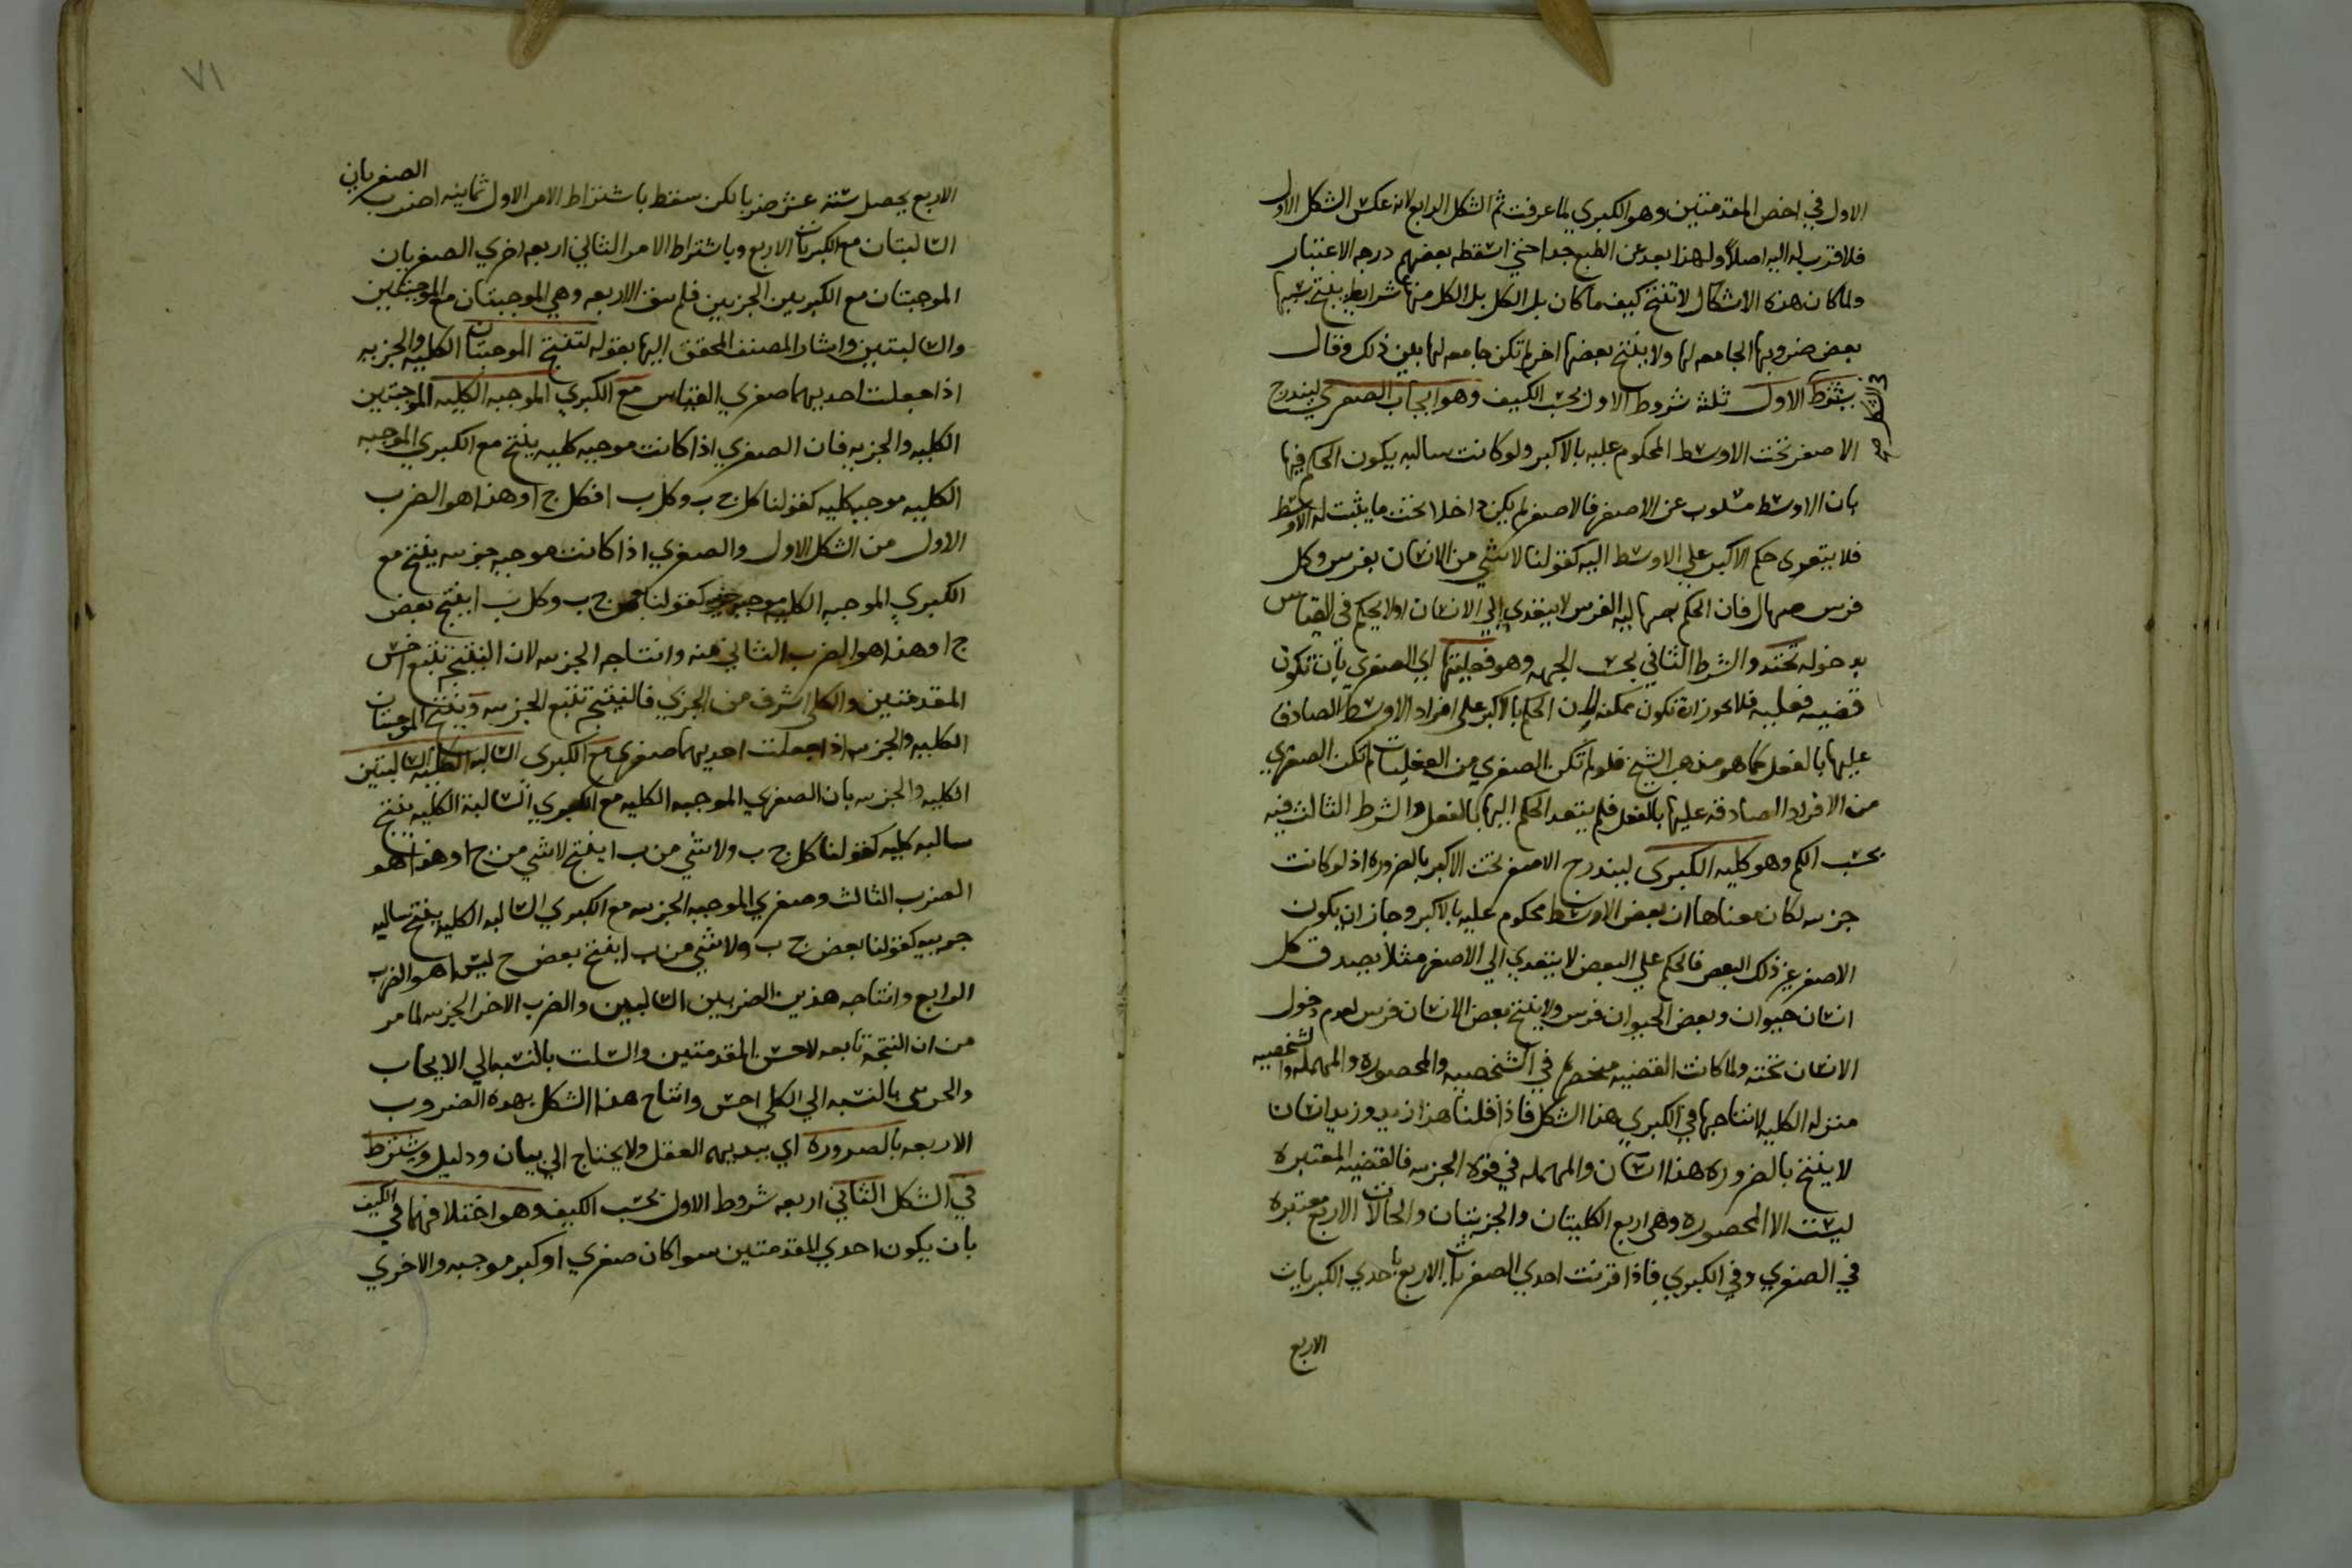 الاول في اخص المقدمتين وهو الكبري لما عرفت ثم الشكل الرابع لانه عكس الشكل الاول
فلا قرب له اليه اصلا ولهذا بعد عن الطبع جدا حتي اسقطه بعضهم درجه الاعتبار
ولما كان هذه الاشكال لا تنتج كيف ما كان بل الكل بل الكل منها شرايط ينتج بسببها
بعض ضروبها الجامعه لها ولا ينتج بعضها اخر لم تكن جامعه لها بين ذلك وقال
يشترط الاول ثلثه شروط الاول بحسب الكيف وهو ايجاب الصغري ليندرج
في الشكل
الاصغر تحت الاوسط المحكوم عليه بالاكبر ولو كانت سالبه يكون الحكم فيها
بان الاوسط مسلوب عن الاصغر فالاصغر لم يكن داخلا تحت ما يثبت له الاوسط
فلا يتعدي حكم الاكبر علي الاوسط اليه كقولنا لا شي من الانسان بفرس وكل
فرس صهال فان الحكم بصهاليه الفرس لا يتعدي الي الانسان اولا يحكم في القياس
بدخوله تحته والشرط الثاني بحسب الجهه وهو فعليتها اي الصغري بان تكون
قضيه فعليه فلا يجوز ان تكون ممكنه لان الحكم بالاكبر علي افراد الاوسط الصادق
عليها بالفعل كما هو مذهب الشيخ فلو لم تكن الصغري من الفعليات لم تكن الصغري
من الافراد الصادقه عليها بالفعل فلم يتعد الحكم اليها بالفعل والشرط الثالث فيه
بحسب الكم وهو كليه الكبري ليندرج الاصغر تحت الاكبر بالضروره اذ لو كانت
جزيه لكان معناها ان بعض الاوسط محكوم عليه بالاكبر وجاز ان يكون
الاصغر غير ذلك البعض فالحكم علي البعض لا يتعدي الي الاصغر مثلا يصدق كل
انسان حيوان وبعض الحيوان فرس ولا ينتج بعض الانسان فرس لعدم دخول
الانسان تحته ولما كانت القضيه منحصره في الشخصيه والمحصوره والمهمله والشخصيه
منزله الكليه لانتاجها في الكبري هذا الشكل فاذا قلنا هذا زيد وزيد انسان
لا ينتج بالضروره هذا انسان والمهمله في قوه الجزيه فالقضيه المعتبره
ليست الا المحصوره وهي اربع الكليتان والجزيتان والحالات الاربع معتبره
في الصغري وفي الكبري فاذا اقترنت احدي الصغريات الاربع باحدي الكبريات
الاربع
٧١
الاربع يحصل ستة عشر ضربا لكن سقط باشتراط الامر الاول ثمانيه اضرب الصغريان
السالبتان مع الكبريات الاربع وباشتراط الامر الثاني اربعه اخري الصغريان
الموجبتان مع الكبريين الجزيين فلم يبق الاربعه وهي الموجبتان مع الموجبتين
والسالبتين واشار المصنف المحقق اليها بقوله لتنتج الموجبتان الكليه والجزيه
اذا جعلت احديهما صغري القياس مع الكبري الموجبه الكليه الموجبتين
الكليه والجزيه فان الصغري اذا كانت موجبه كليه ينتج مع الكبري الموجبه
الكليه موجبه كليه كقولنا كل ج ب وكل ب ا فكل ج ا وهذا هو الضرب
الاول من الشكل الاول والصغري اذا كانت موجبه جزيه ينتج مع
الكبري الموجبه الكليه موجبه جزيه كقولنا بعض ج ب وكل ب ا ينتج بعض
ج ا وهذا هو الضرب الثاني منه وانتاجه الجزيه لان النتيجه تتبع اخس
المقدمتين والكلي اشرف من الجزي فالنتيجه تتبع الجزيه وينتج الموجبتان
الكليه والجزيه اذا جعلت احديهما صغري مع الكبري السالبه الكليه السالبتين
الكليه والجزيه بان الصغري الموجبه الكليه مع الكبري السالبة الكليه ينتج
سالبه كليه كقولنا كل ج ب ولا شي من ب ا ينتج لا شي من ج ا وهذا هو
الضرب الثالث وصغري الموجبه الجزيه مع الكبري السالبه الكليه ينتج سالبه
جزييه كقولنا بعض ج ب ولا شي من ب ا ينتج بعض ج ليس ا هو الضرب
الرابع وانتاجه هذين الضربين السالبين والضرب الاخر الجزيه لما مر
من ان النتيجة تابعه لاخس المقدمتين والسلب بالنسبه الي الايجاب
والجزيي بالنسبه الي الكلي اخس وانتاج هذا الشكل بهذه الضروب
الاربعه بالضروره اي ببديهه العقل ولا يحتاج الي بيان ودليل ويشترط
في الشكل الثاني اربعه شروط الاول بحسب الكيف وهو اختلافهما في الكيف
بان يكون احدي المقدمتين سوا كان صغري او كبر موجبه والاخري